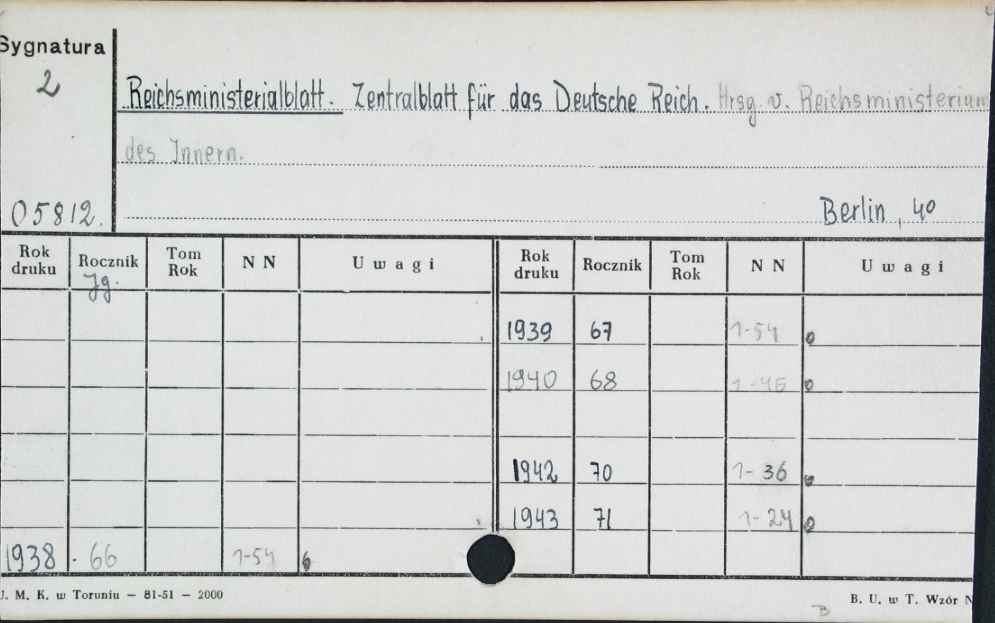 Sygnatura
2
Reichsministerialblatt. Zentralblatt für das Deutsche Reich. Hrsg. v. Reichsministerium
des Innern.
05812.
Berlin, 40
Rok druku Rocznik Tom Rok NN Uwagi Rok druku Rocznik Tom Rok NN Uwagi
Jg.
1939 67 1-54
1940 68 1-46
1942 70 1-36
1943 71 1-24
1938 66 1-54
J. M. K. w Toruniu — 81-51 — 2000
B. U. w T. Wzór N
B